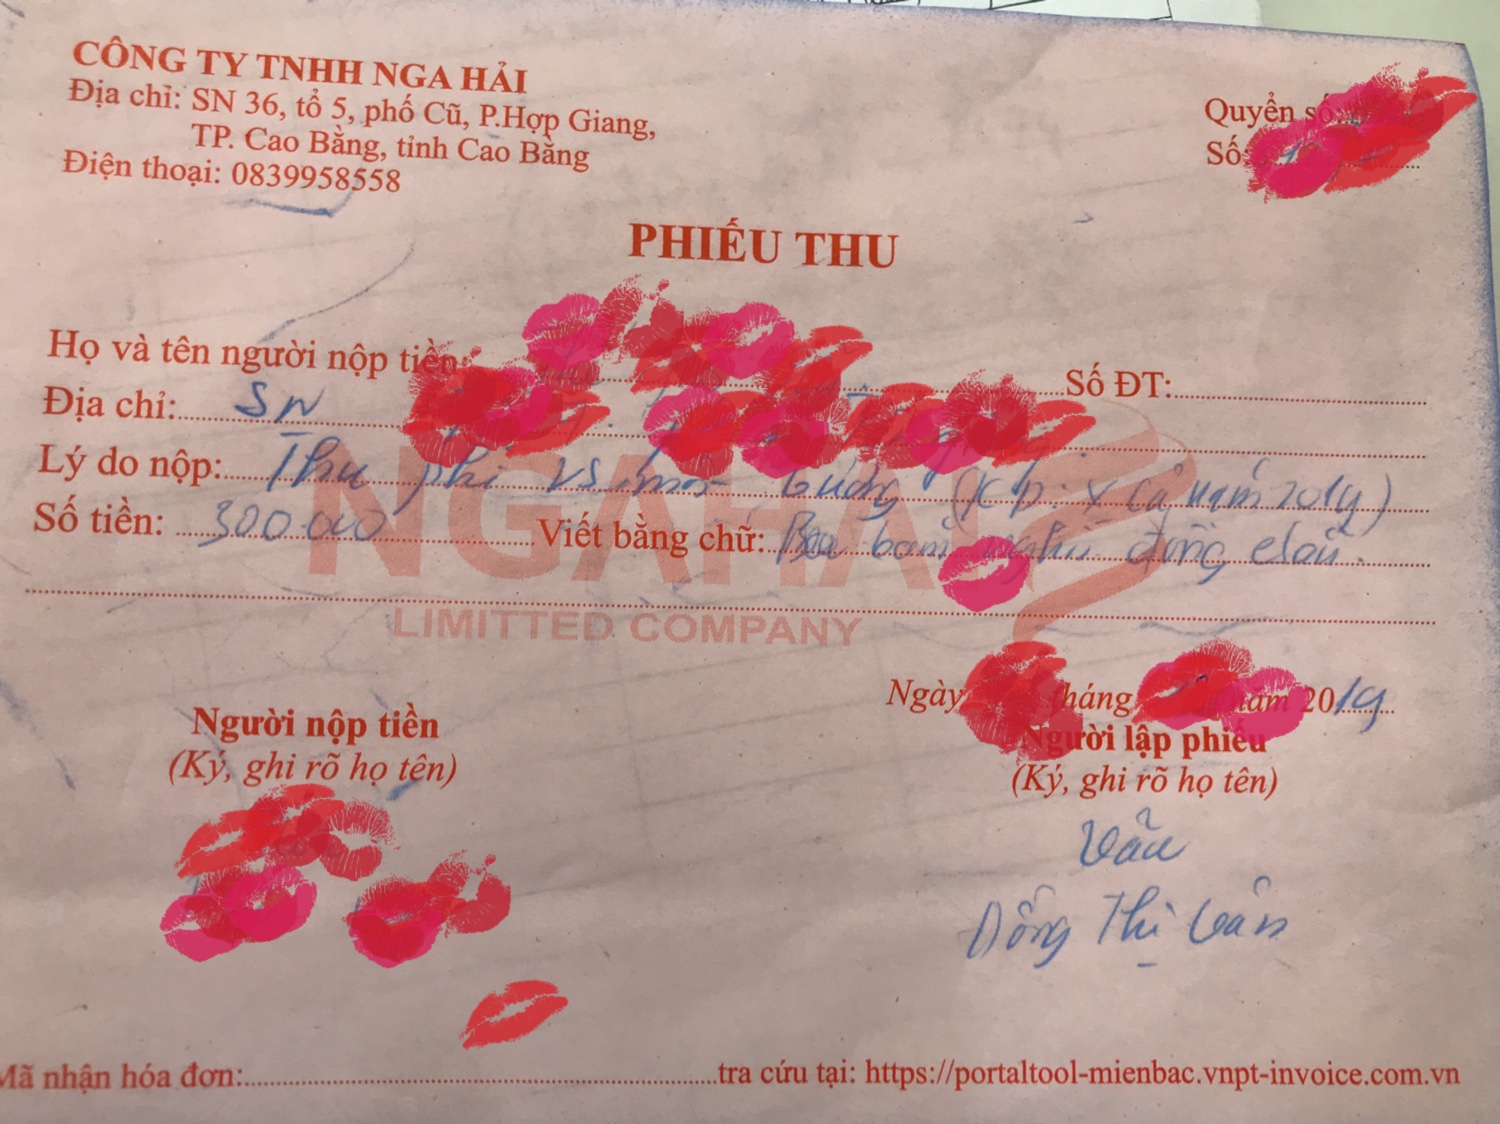 CÔNG TY TNHH NGA HẢI
Địa chỉ: SN 36, tổ 5, phố Cũ, P.Hợp Giang,
TP. Cao Bằng, tỉnh Cao Bằng
Điện thoại: 0839958558
Quyển số
Số
PHIẾU THU
Họ và tên người nộp tiền: Số ĐT:
Địa chỉ: SN
Lý do nộp: Thu phí VS môi trường năm 2019)
Số tiền: 300.000 Viết bằng chữ: Ba trăm nghìn đồng chẵn.
NGAHAI
LIMITTED COMPANY
Ngày tháng năm 2019
Người nộp tiền
(Ký, ghi rõ họ tên)
Người lập phiếu
(Ký, ghi rõ họ tên)
Vân
Đồng Thị Vân
Mã nhận hóa đơn: tra cứu tại: https://portaltool-mienbac.vnpt-invoice.com.vn